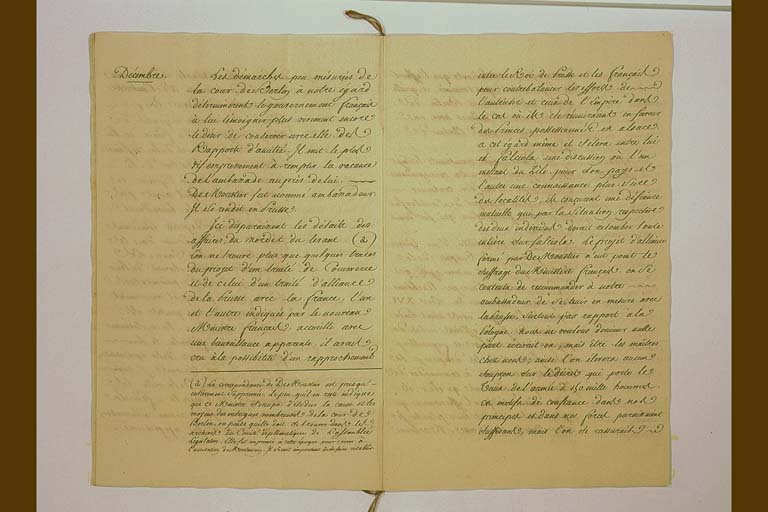 Décembre.
Les démarches peu mesurées de
la cour de Berlin à notre égard
déterminèrent le gouvernement français
à lui témoigner plus vivement encore
le désir de conserver avec elle des
Rapports d'amitié. Il mit le plus
vif empressement à remplir la vacance
de l'ambassade auprès de lui.
De Moustier fut nommé ambassadeur.
Il se rendit en Prusse.
Ici disparaissent les détails des
affaires du nord et du levant (a)
l'on ne trouve plus que quelques traces
du projet d'un traité de Commerce
et de celui d'un traité d'alliance
de la Prusse avec la France, l'un
et l'autre indiqués par le nouveau
Ministre français accueilli avec
une bienveillance apparente, il avait
cru à la possibilité d'un rapprochement
(a) La correspondance de De Moustier est presqu'
entièrement supprimée. Le peu qu'il en reste indique
que ce Ministre s'occupa d'étudier la cause et les
moyens des intrigues nombreuses de la cour de
Berlin, on pense qu'elle doit se trouver dans les
archives du Comité diplomatique de l'assemblée
législative. Elle fut imprimée à cette époque
l'accusation de Montmorin. Il serait important de la faire rétablir
entre le Roi de Prusse et les français
pour contrebalancer les efforts de
l'autriche et ceux de l'Empire dans
le cas où ils se réuniraient en faveur
des Princes possessionnés en alsace
à cet égard même il s'éleva entre lui
et une discussion où l'un
mettait du zèle pour son pays et
l'autre une connaissance plus sûre
des localités, ils conçurent une défiance
mutuelle qui par la situation respective
des deux individus devait retomber toute
entière sur Le projet d'alliance
formé par De Moustier n'eut point le
suffrage du Ministère français, on se
contenta de recommander à notre
ambassadeur de se tenir en mesure avec
la Prusse, surtout par rapport à la
Pologne. Nous ne voulons dominer nulle
part écrivait-on, mais être les maîtres
chez nous; ainsi l'on n'élevera aucun
soupçon sur le décret qui porte le
Taux de l'armée à 150 mille hommes.
Ce motif de confiance dans nos
principes et dans nos forces paraissait
suffisant, mais l'on se rassurait